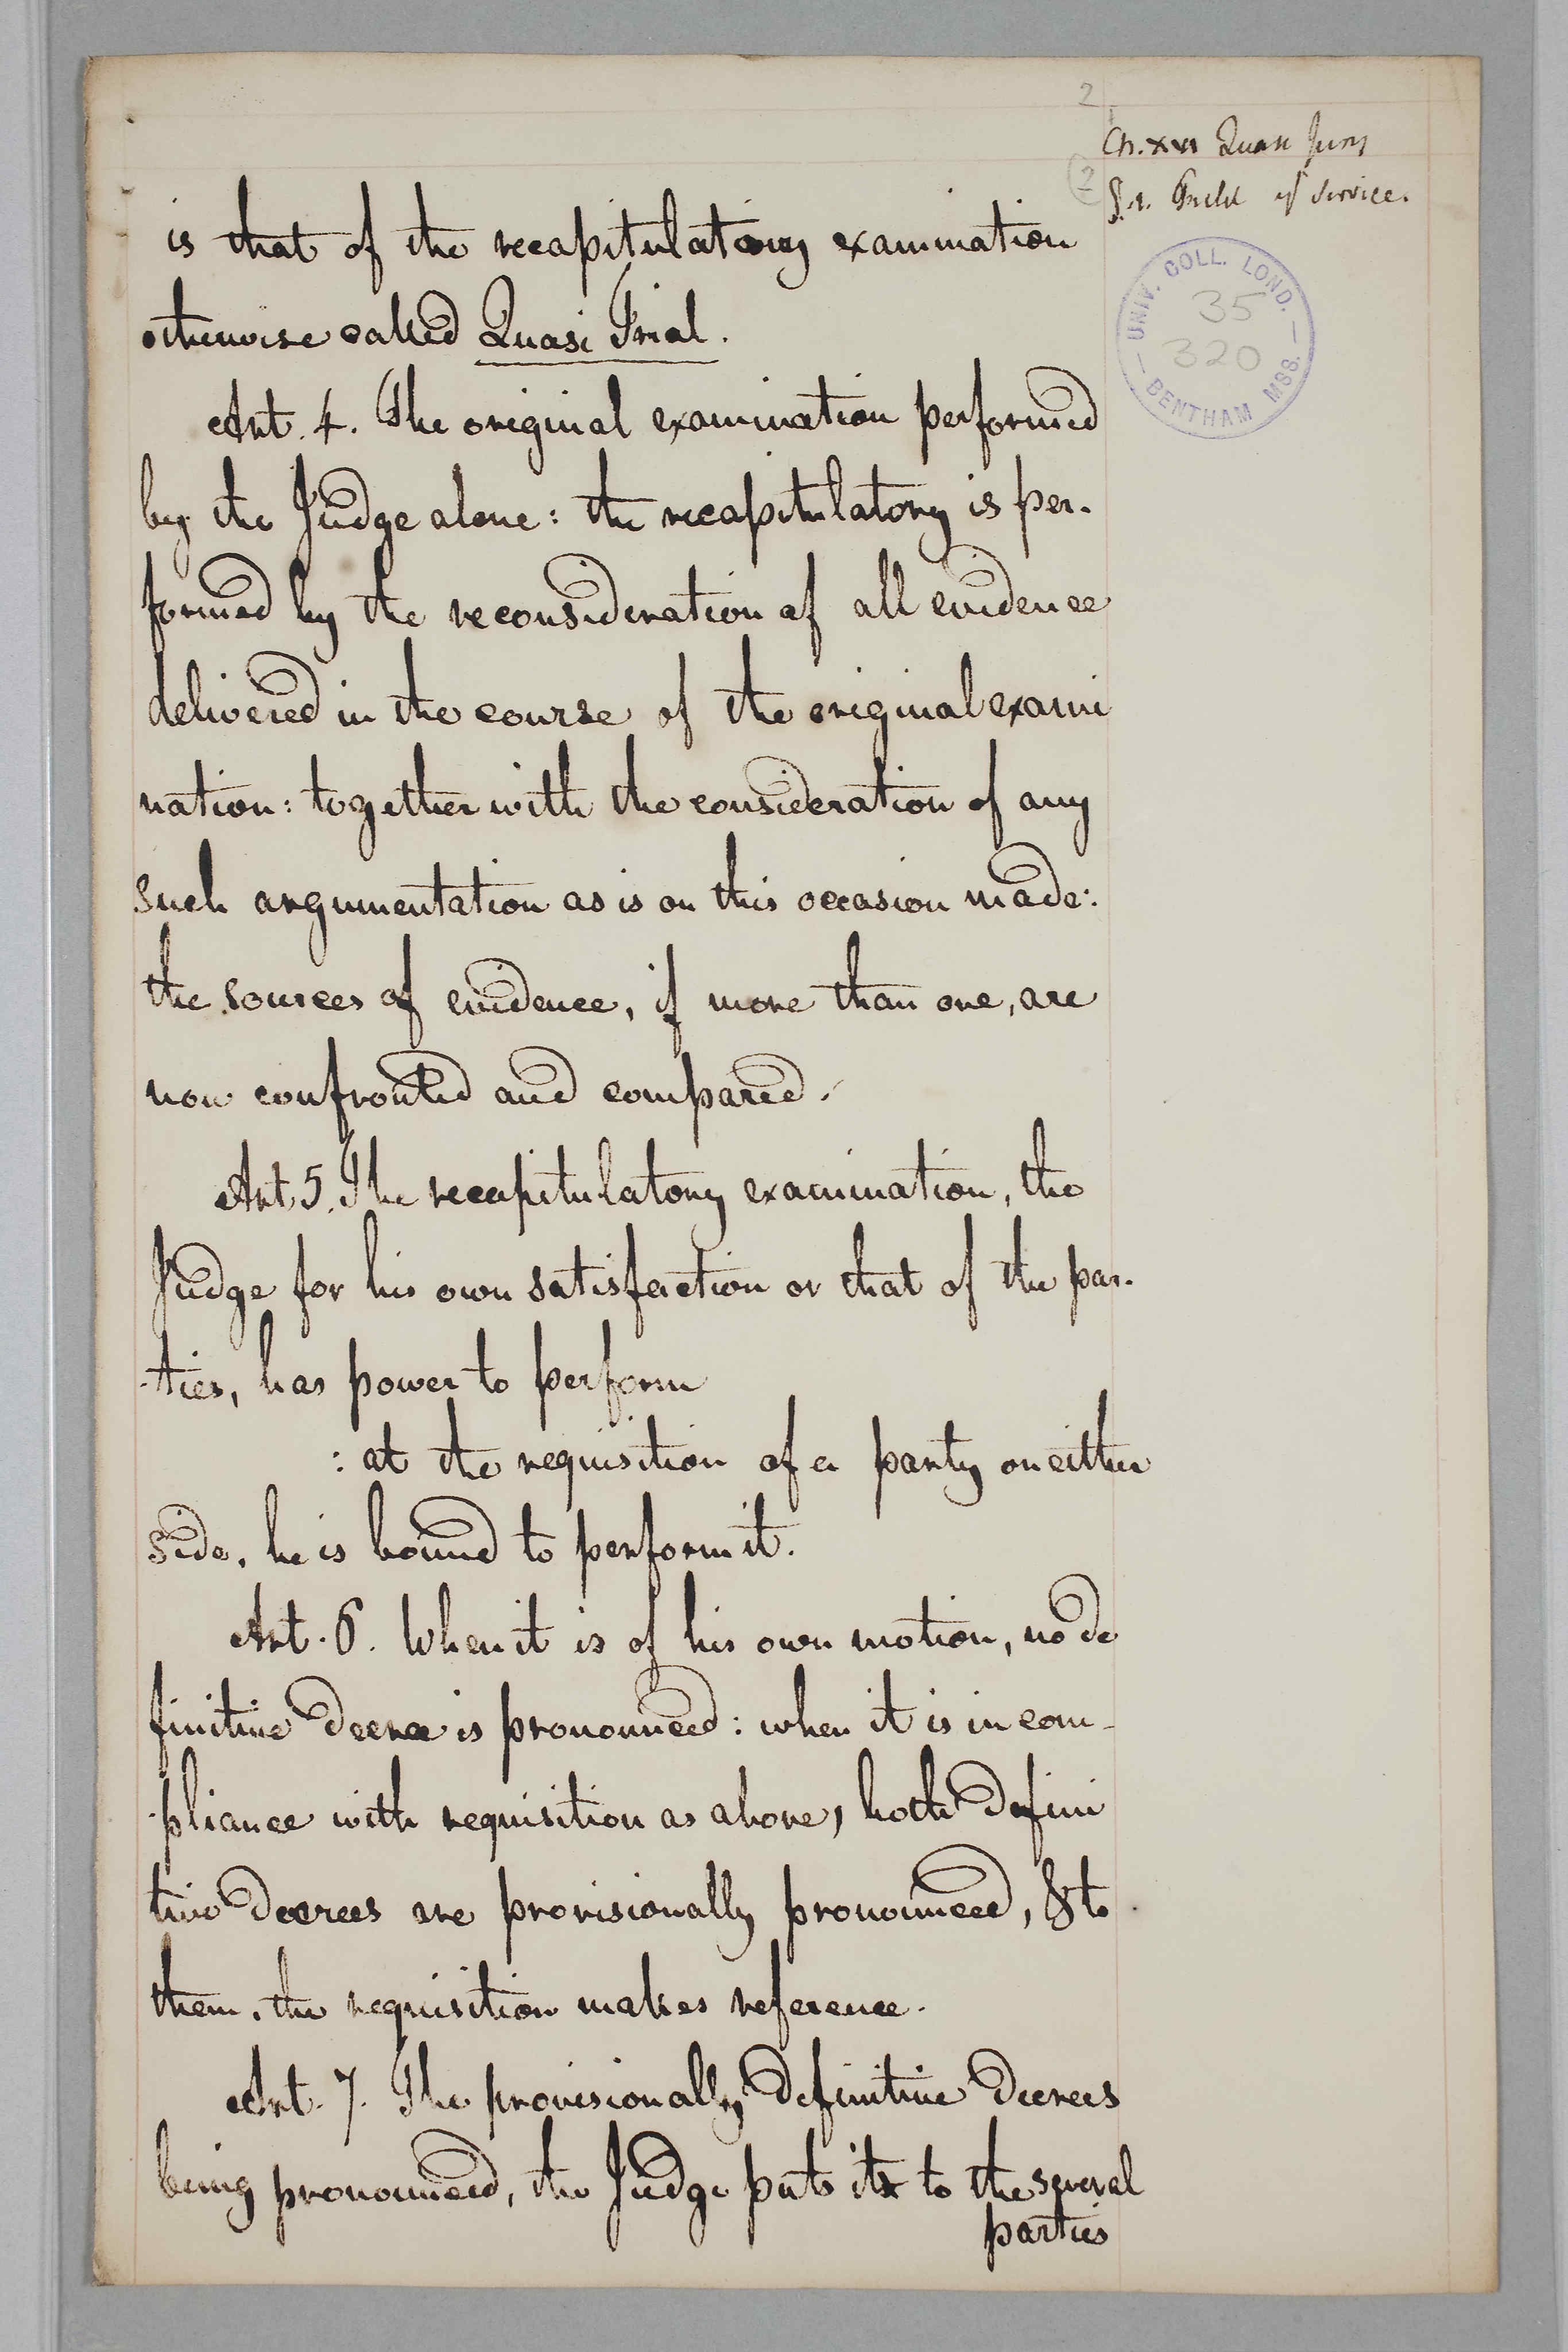 2
Ch. XVI Quasi Jury
(2
§.1. Field of Service.
UNIV. COLL. LOND.
35
320
BENTHAM MSS.
is that of the recapitulatory examination
otherwise called Quasi Trial.
Art. 4. The original examination performed
by the Judge alone: the recapitulatory is per-
formed by the reconsideration of all evidence
delivered in the course of the original exami
nation: together with the consideration of any
such argumentation as is on this occasion made:
the sources of evidence, if more than one, are
now confronted and compared.
Art 5. The recapitulatory examination, the
Judge for his own satisfaction or that of the par-
-ties, has power to perform
: at the requisition of a party on either
side, he is bound to perform it.
Art. 6. When it is of his own motion, no de
finitive decree is pronounced: when it is in com-
-pliance with requisition as above, both defini
tive decrees are provisionally pronounced, & to
them, the requisition makes reference.
Art. 7. The provisionally definitive decrees
being pronounced, the Judge puts it to the several
parties